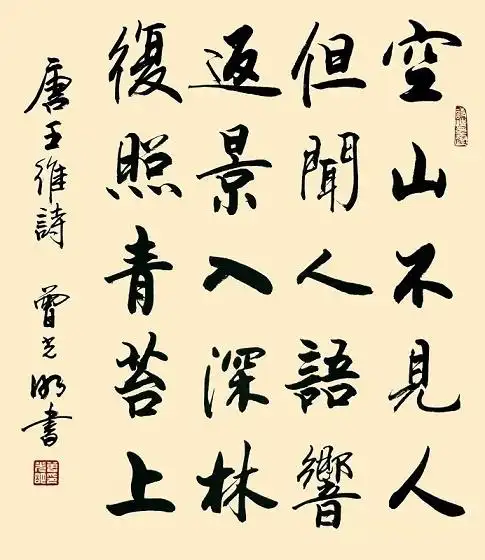 空山不見人
但聞人語響
返景入深林
復照青苔上
唐王維詩 曾光明書